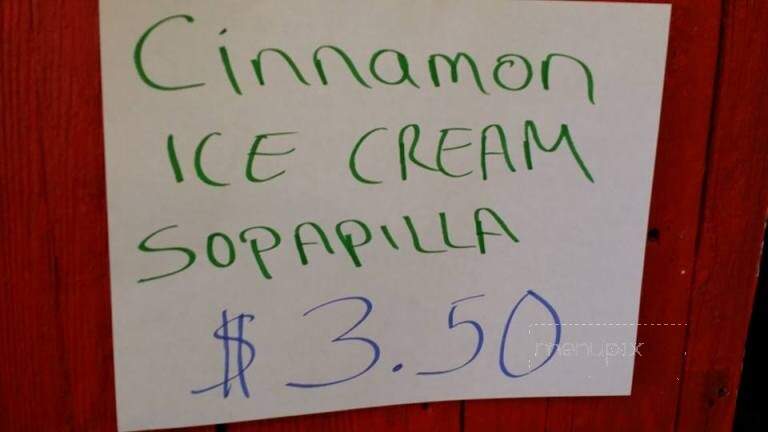 Cinnamon
ICE CREAM
SOPAPILLA
$3.50
menupix